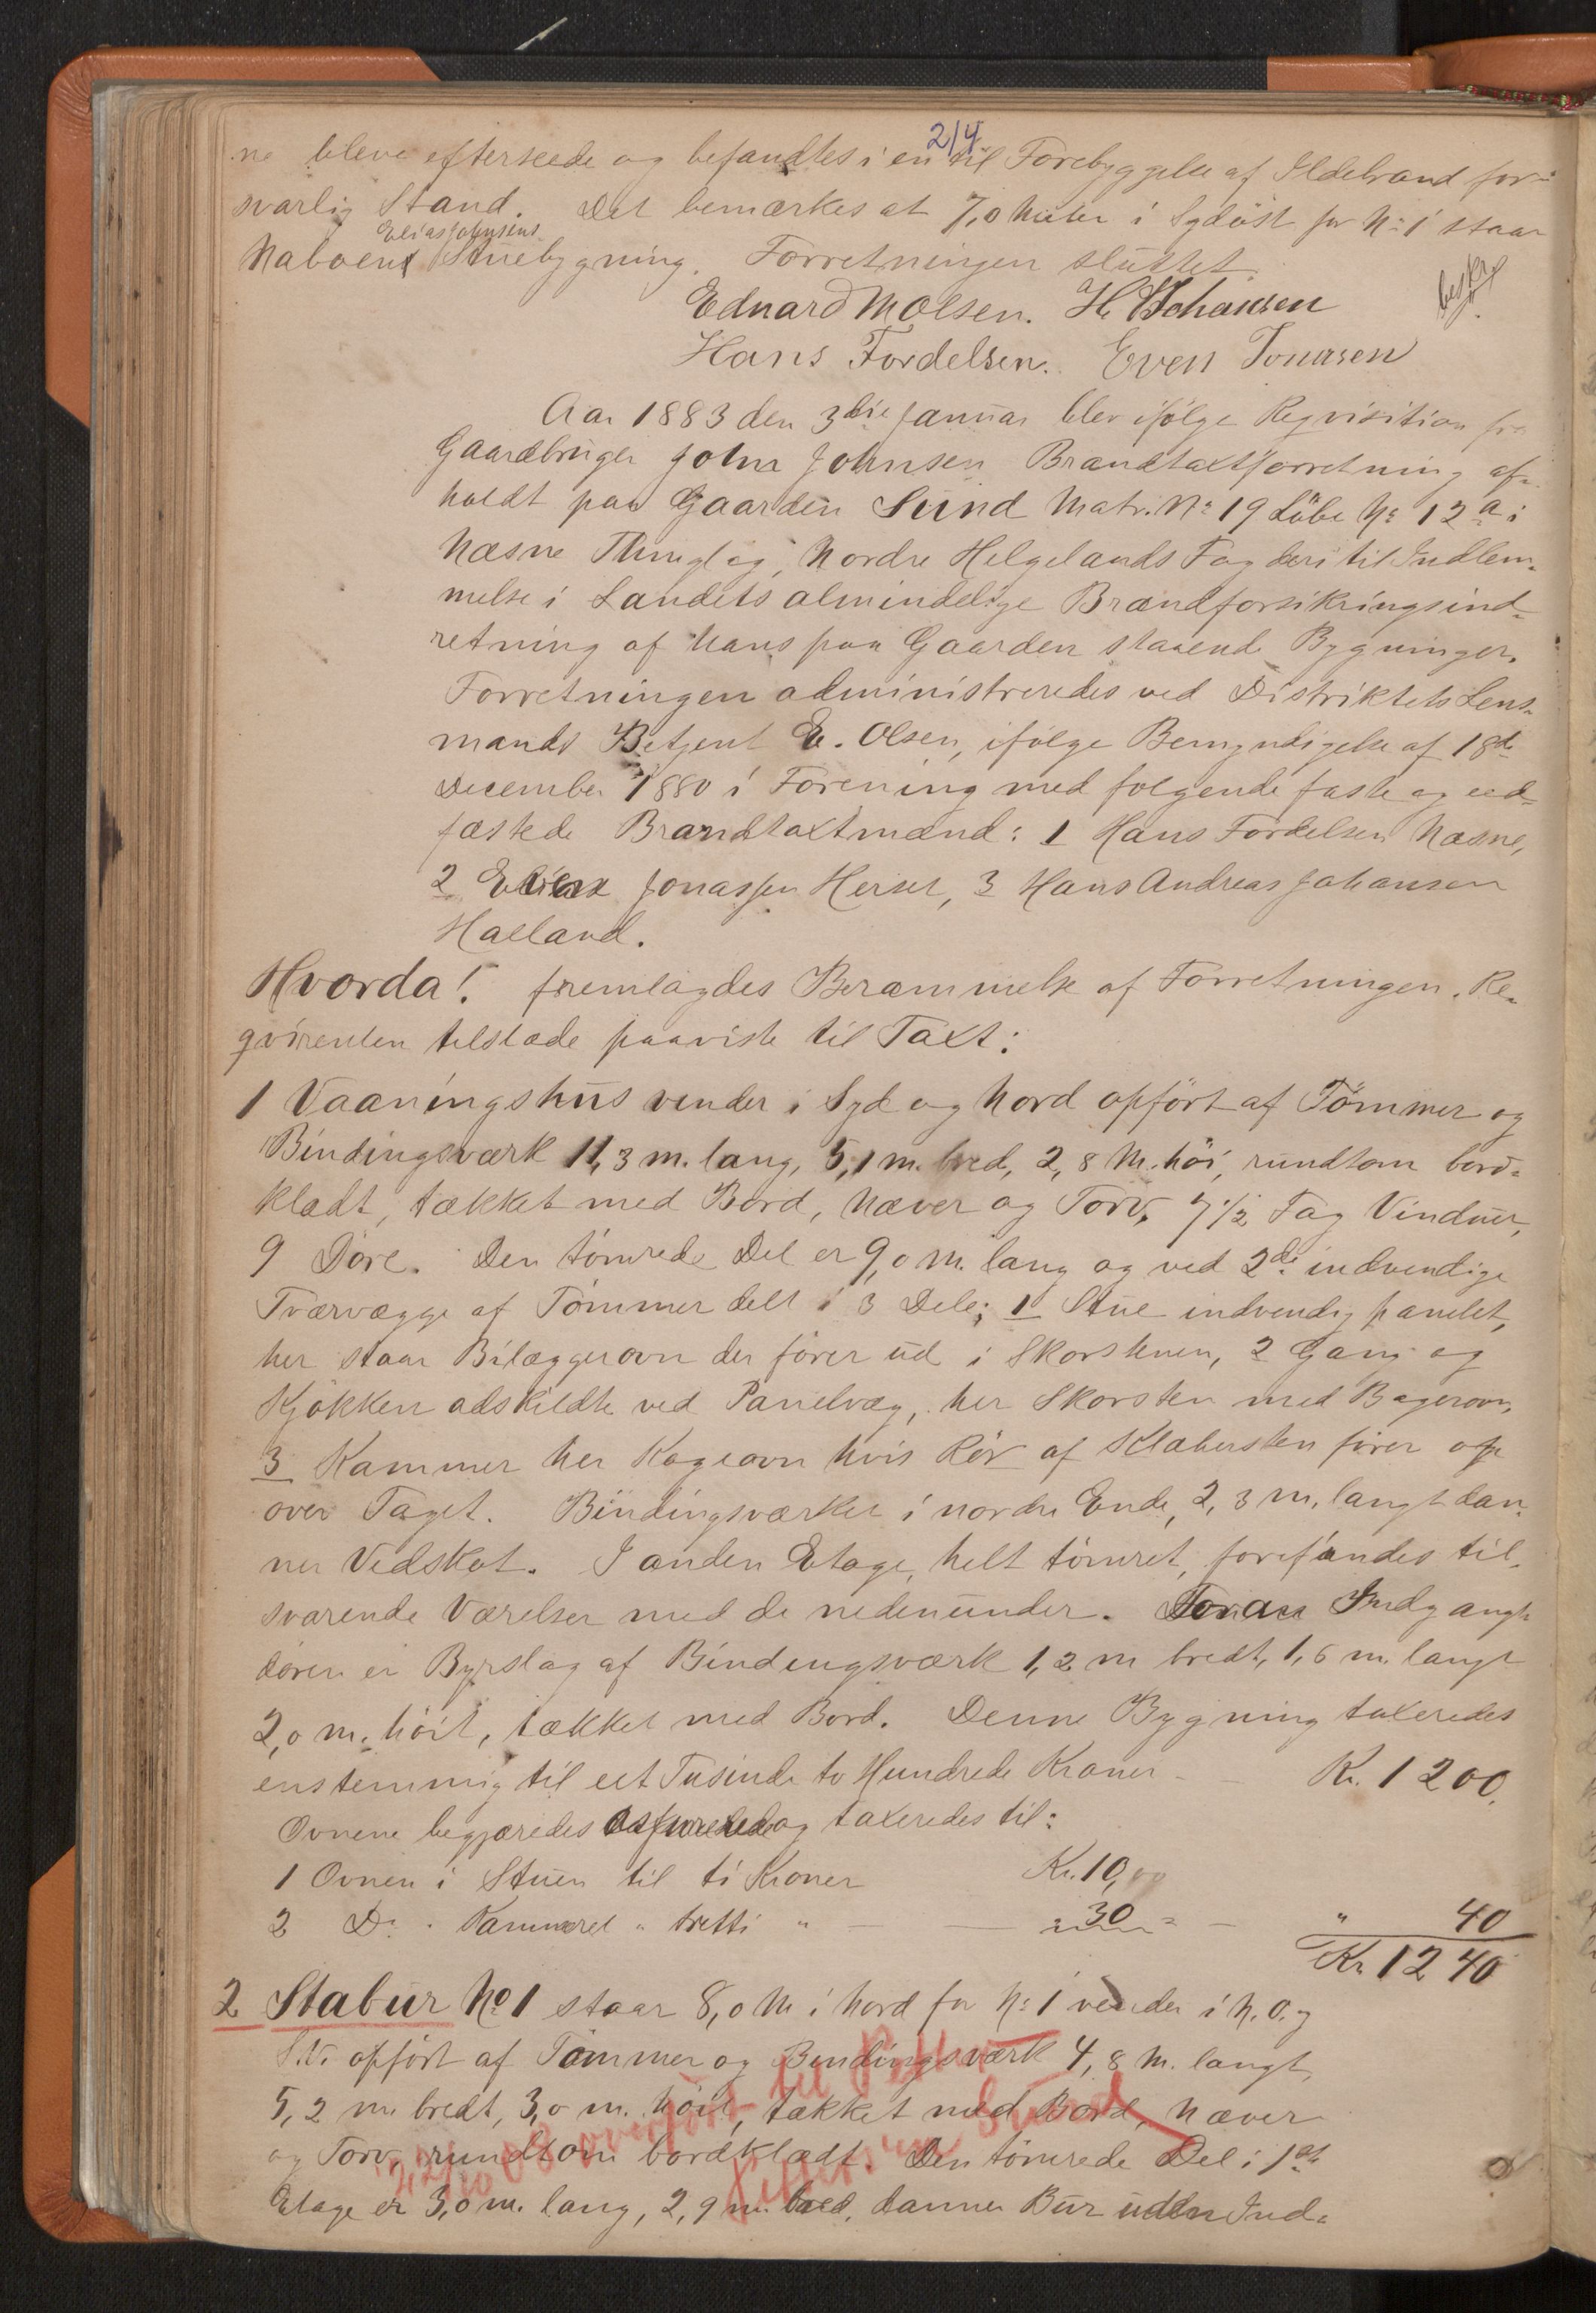 2/4
ne bleve efterseede og befandtes i en til Forebyggelse af Ildebrand for-
svarlig Stand. Det bemærkes at 7,0 Meter i Sydöst for No 1 staar
Elias Johnsens
Naboens Stuebygning. Forretningen sluttet.
Eduard M Olsen. H. Johansen
Hans Fordelsen. Even Jonasen
Aar 1883 den 3die Januar blev ifölge Reqvisition fra
Gaardbruger John Johnsen Brandtaxtforretning af-
holdt paa Gaarden Sund Matr. No 19 Löbe No 12a i
Næsne Thinglag, Nordre Helgelands Fogderi til Indlem-
melse i Landets almindelige Brandforsikringsind-
retning af hans paa Gaarden staaende Bygninger.
Forretningen administreredes ved Distriktets Lens-
mands Betjent E. Olsen, ifölge Bemyndigelse af 18de
December 1880 i Forening med folgende faste og eed-
fæstede Brandtaxtmænd: 1 Hans Fordelsen Næsne,
2 Jonassen Herset, 3 Hans Andreas Johansen
Halland.
Hvorda! fremlagdes Berammelse af Forretningen. Re-
qvirenten tilstæde paaviste til Taxt:
1 Vaaningshus vender i Syd og Nord opfört af Tömmer og
Bindingsværk 11,3 m. lang, 5,1 m. bred, 2,8 M. höi, rundtom bord-
klædt, tækket med Bord, Næver og Torv. 7 1/2 Fag Vinduer,
9 Döre. Den tömrede Del er 9,0 M. lang og ved 2de indvendige
Tværvægge af Tömmer delt i 3 Dele; 1 Stue indvendig panelet,
her staar Bilæggerovn der förer ud i Skorstenen, 2 Gang og
Kjökken adskildte ved Panelvæg, her Skorsten med Bagerovn,
3 Kammer her Kogeovn hvis Rör af Klæbersten förer op
over Taget. Bindingsværket i nordre Ende, 2,3 m. langt dan-
ner Vedskot. I anden Etage, helt tömret, forefandes til-
svarende Værelser med de nedenunder. Foran Indgangs
dören er Byrslag af Bindingsværk 1,2 m bredt, 1,6 m. langt
2,0 m. höit, tækket med Bord. Denne Bygning taxeredes
enstemmig til eet Tusinde to Hundrede Kroner - - Kr. 1200.
Ovnene begjæredes og taxeredes til:
1 Ovnen i Stuen til ti Kroner Kr. 10,00
2 Do " Kammeret " tretti " — — " 30 " — " 40
Kr 1240
2 Stabur No 1 staar 8,0 M i Nord for No 1 vender i N.O. og
S.V. opfört af Tömmer og Bindingsværk 4,8 M. langt,
5,2 m. bredt, 3,0 m. höit, tækket med Bord, Næver
og Torv, rundtom bordklædt. Den tömrede Del i 1ste
Etage er 3,0 m. lang, 2,9 m. bred, danner Bur uden Ind-
22/10 08 overfört til